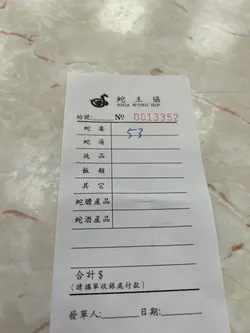 蛇王協
SHIA WONG HIP
枱號: Nº 0013352
蛇羹 53
蛇湯
炖品
飯類
其它
蛇膽產品
蛇酒產品
合計$
(請攜單收銀處付款)
發單人: 日期: